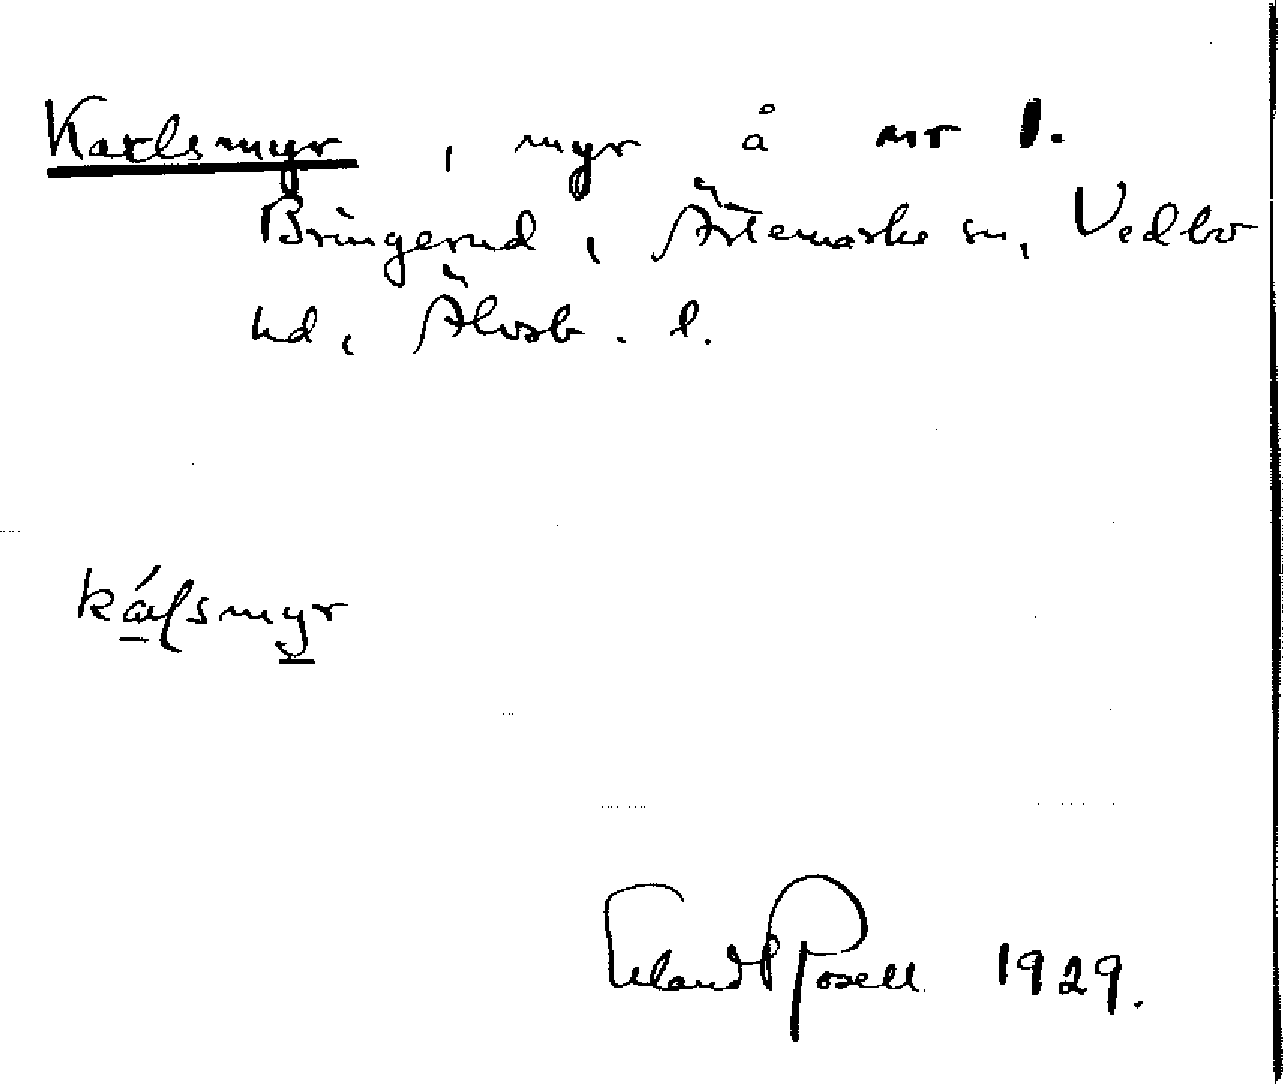 Karlsmyr, myr å nr 1.
Bringerud, Ärtemarks sn, Vedbo
hd, Älvsb. l.
káɭsmyr
Erland Rosell 1929.